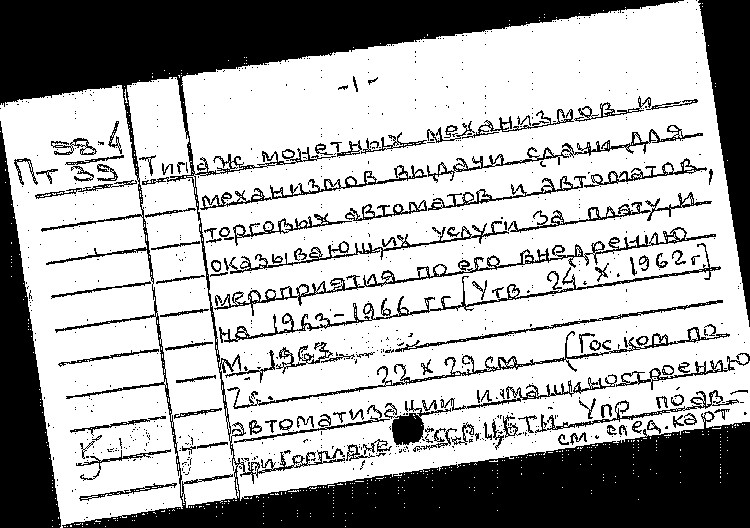 -1-
Пт 98-4/39
Типаж монетных механизмов и
механизмов выдачи сдачи для
торговых автоматов и автоматов,
оказывающих услуги за плату, и
мероприятия по его внедрению
на 1963-1966 гг [Утв. 24.X.1962 г.]
М., 1963.
7 с. 22 х 29 см. (Гос. ком. по
автоматизации и машиностроению
при Госплане СССР. ЦБТИ. Упр по ав-
см. след. карт.